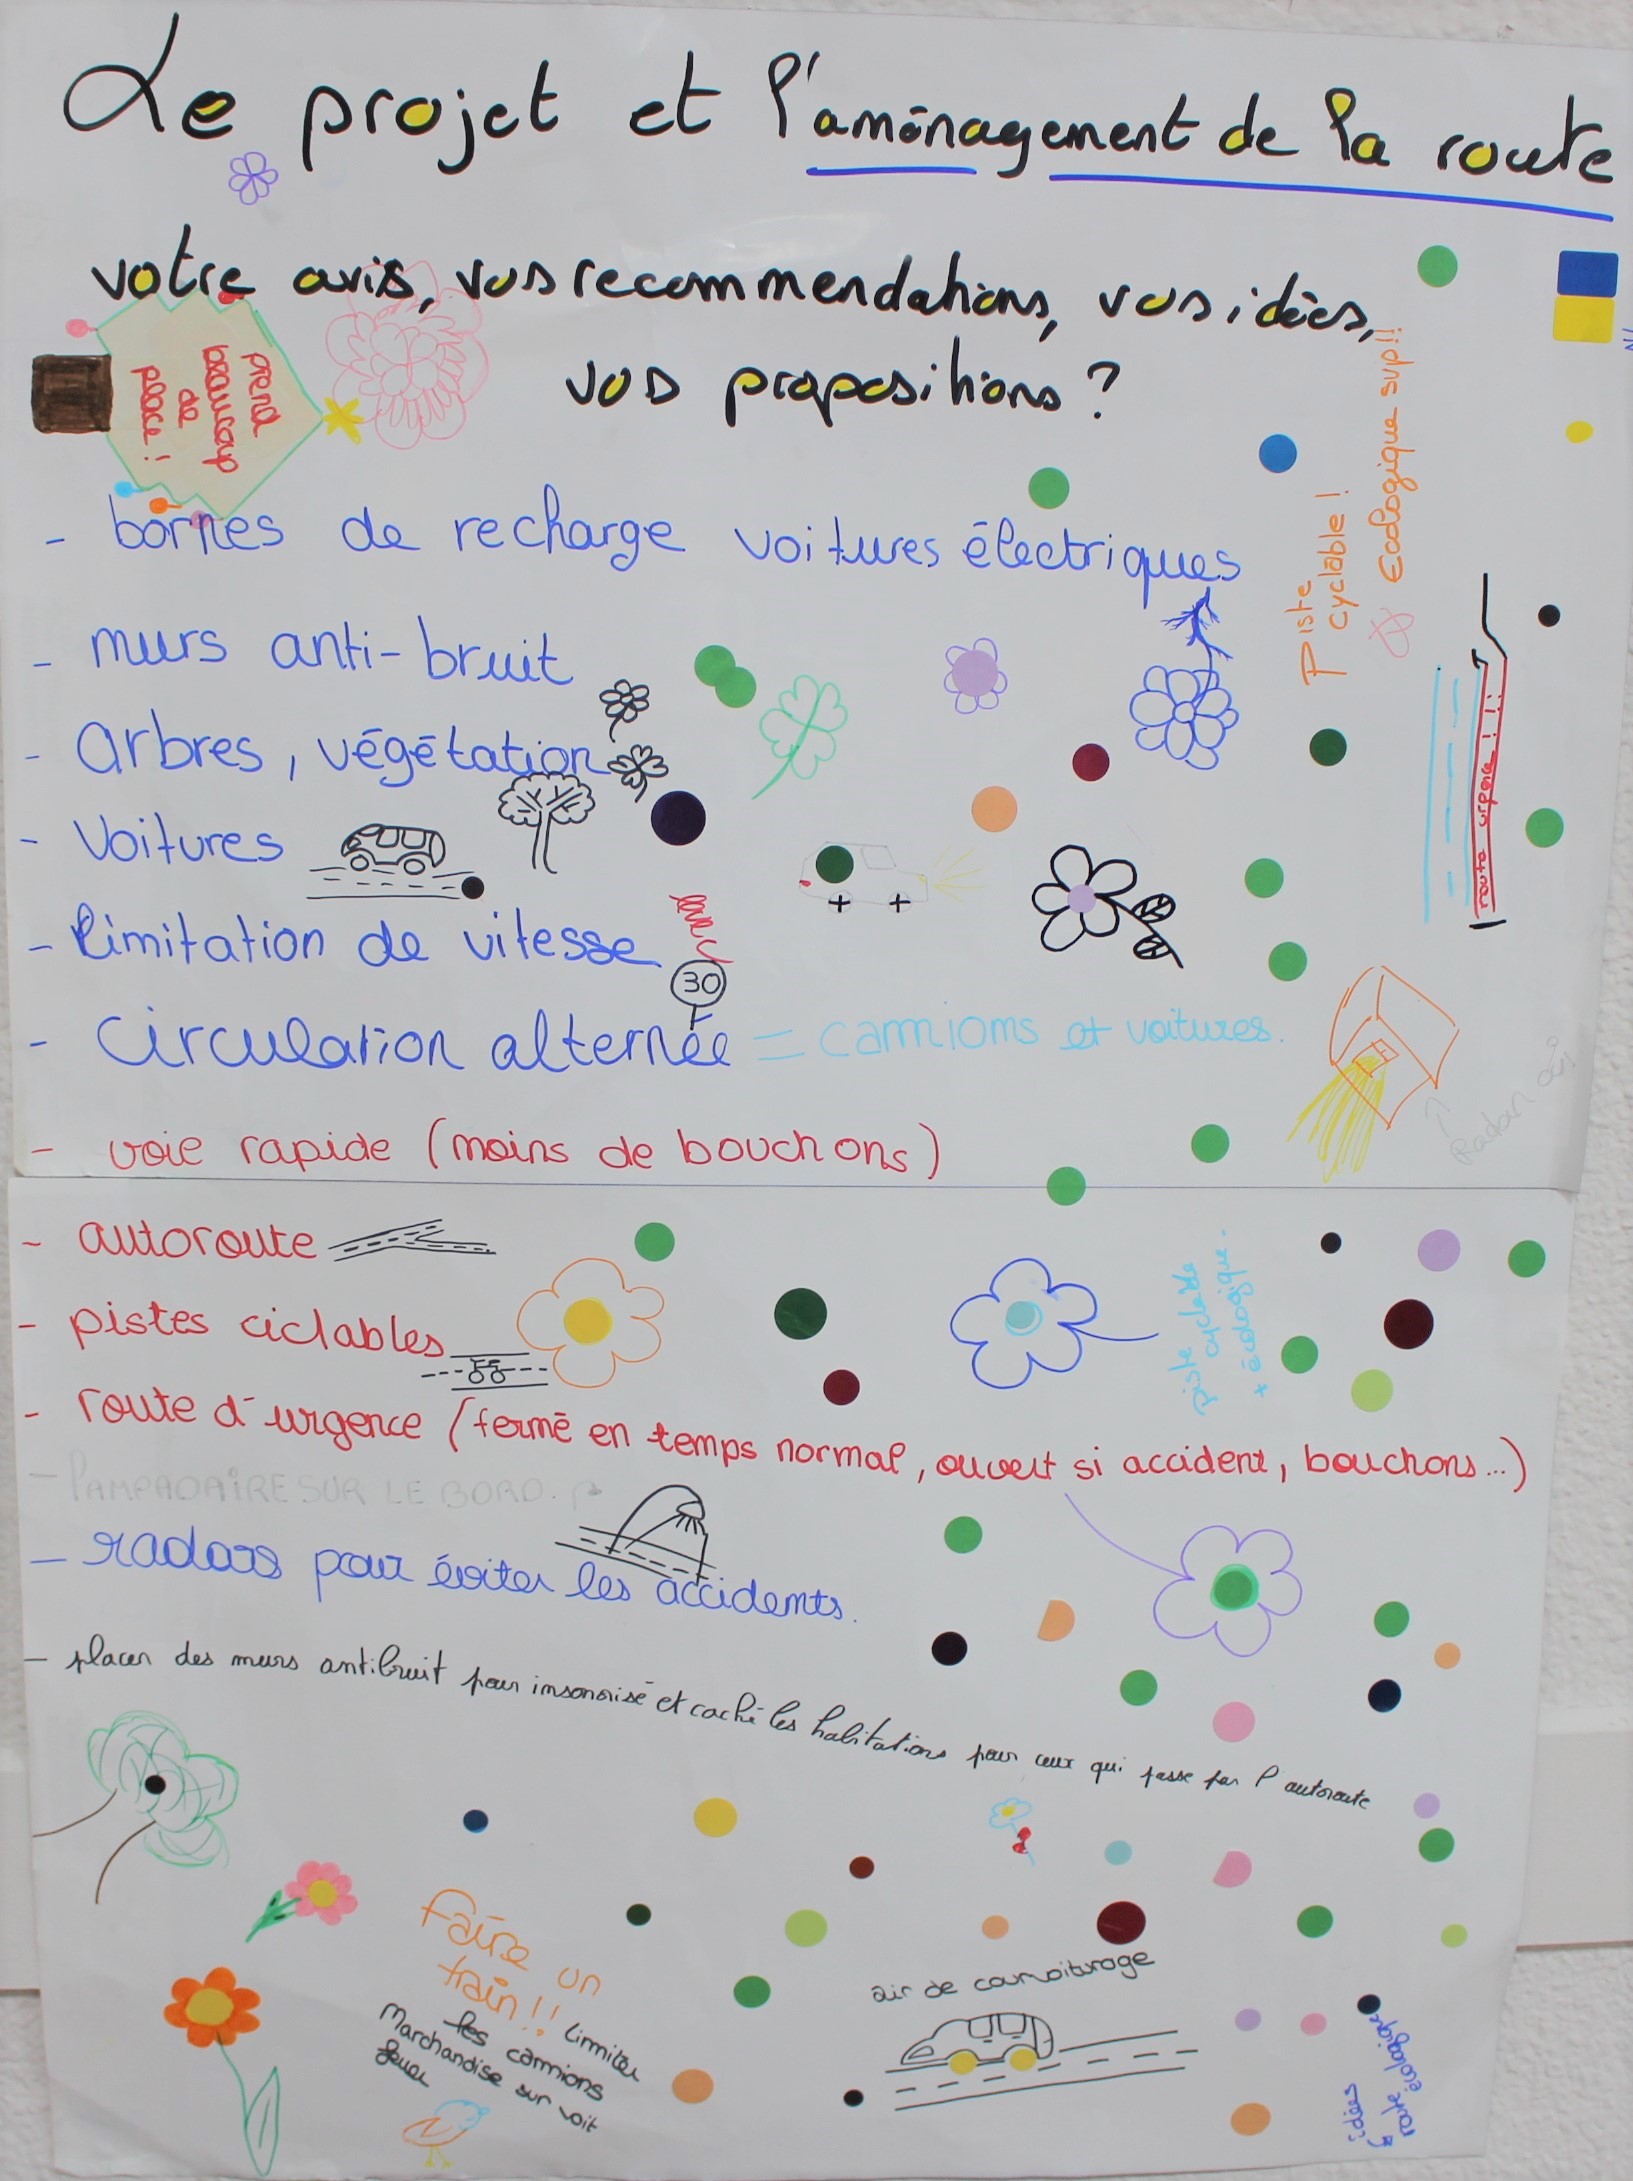 Le projet et l'aménagement de la route
votre avis, vos recommendations, vos idées,
vos propositions ?
prend
beaucoup
de
place !
Piste
cyclable !
Ecologique sup!!
- bornes de recharge voitures électriques
- murs anti-bruit
- arbres, végétation
- voitures
route urgence !!!
- limitation de vitesse
30
- circulation alternée = camions et voitures.
Radar
- voie rapide (moins de bouchons)
- autoroute
piste
cyclable
+ écologique.
- pistes ciclables
- route d'urgence (fermé en temps normal, ouvert si accident, bouchons...)
- LAMPADAIRE SUR LE BORD.
- radars pour éviter les accidents.
- placer des murs antibruit pour insonorisé et caché les habitations pour ceux qui passe par l'autoroute
Faire un
train!!
Limiter
les camions
Marchandise sur voit
air de covoiturage
idées
route écologique